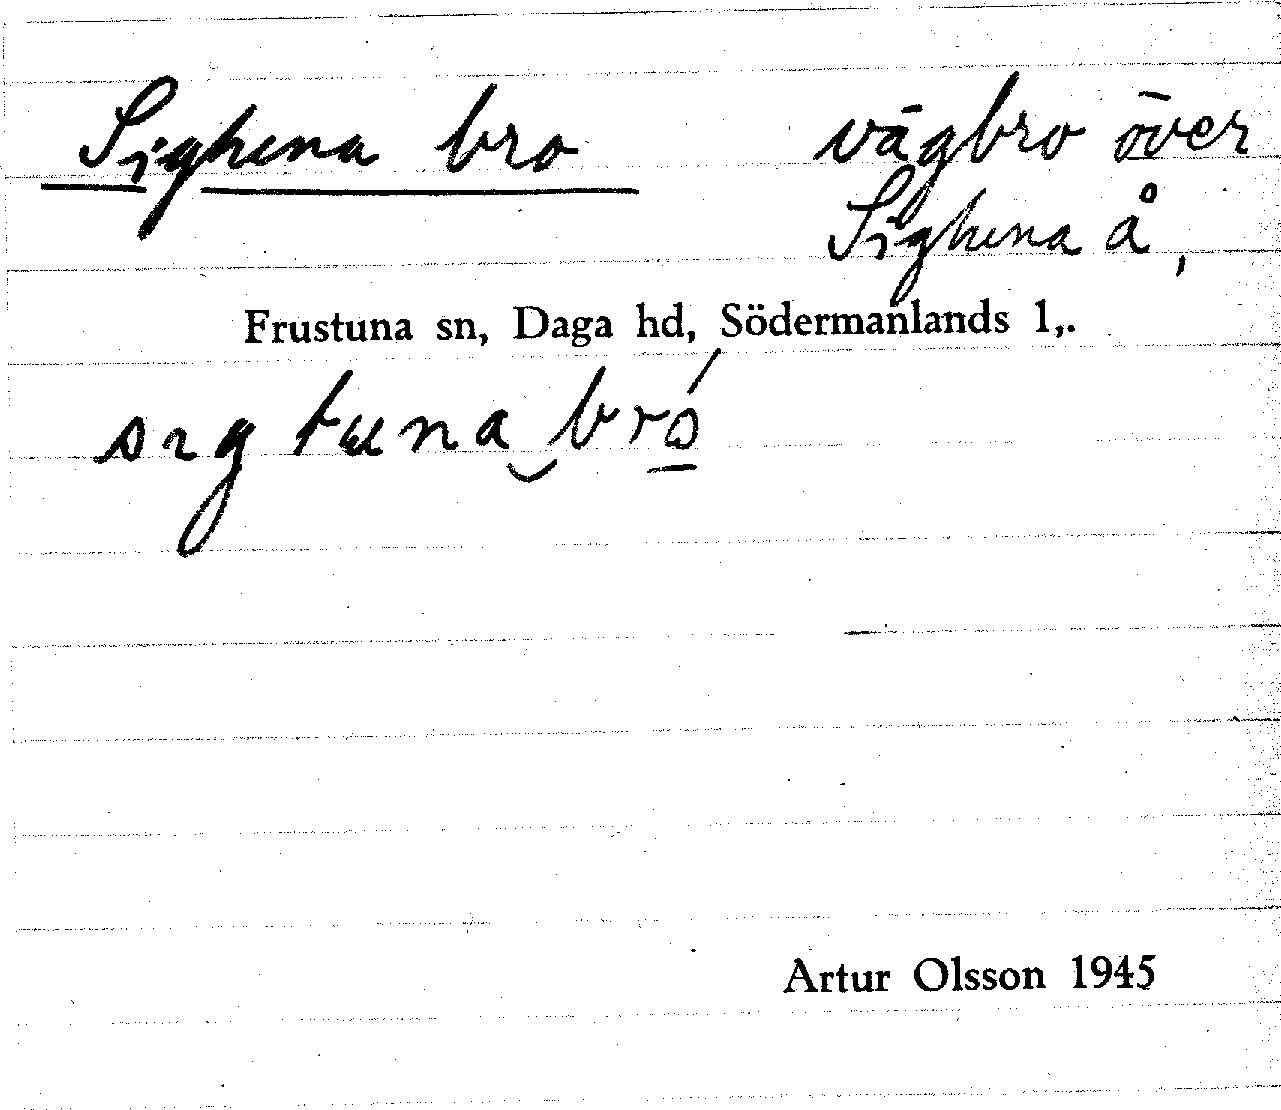 Sigtuna bro vägbro över
Sigtuna å,
Frustuna sn, Daga hd, Södermanlands l,.
sıgtuna‿bró̱
Artur Olsson 1945